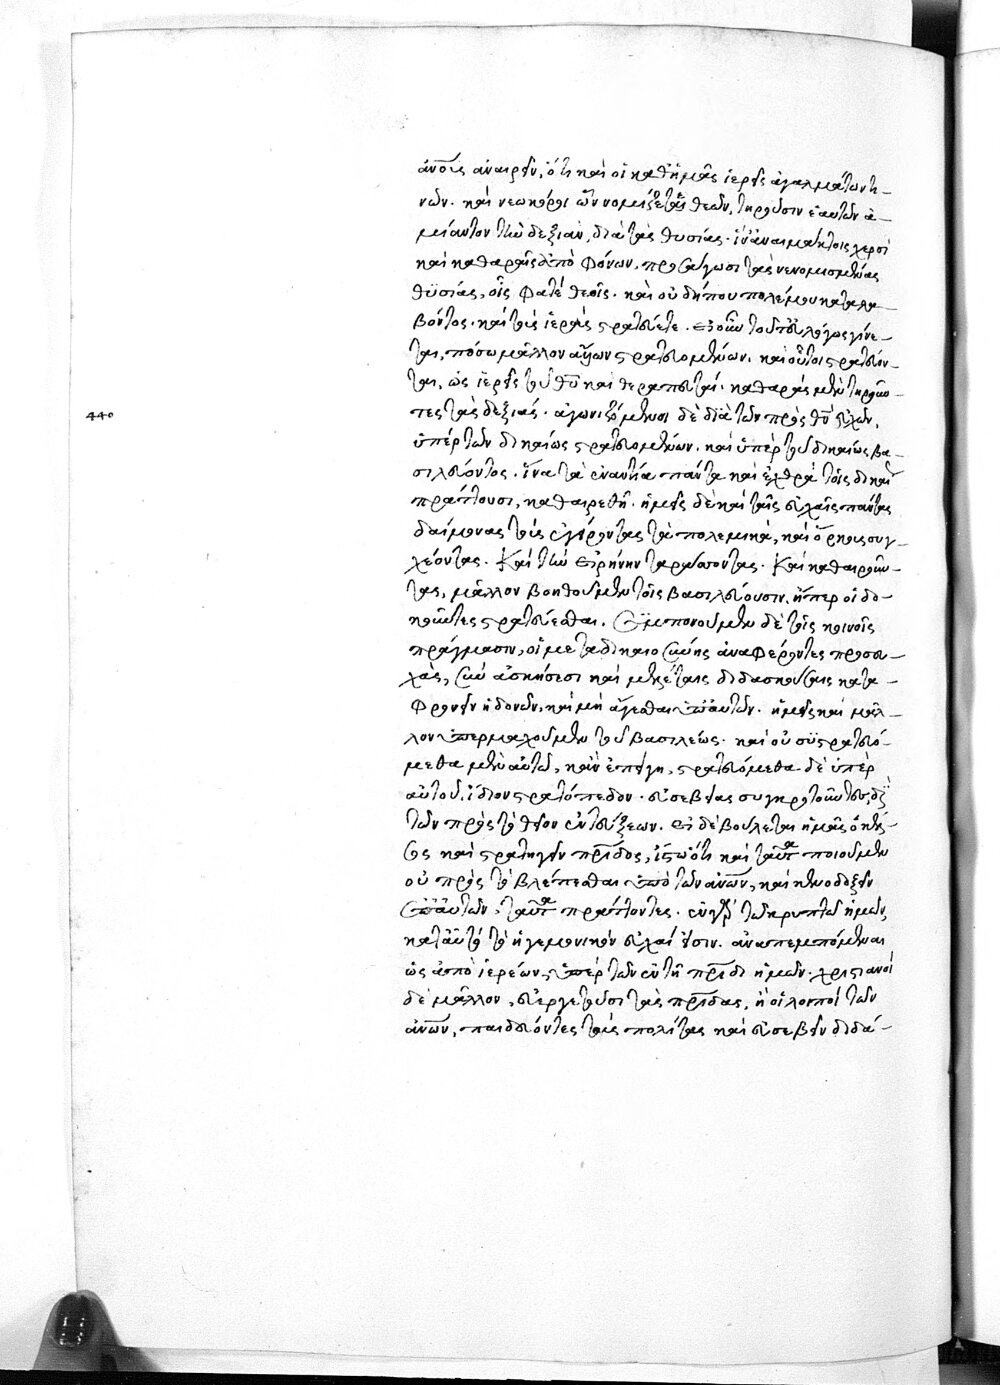 ἀνο͞υς ἀναιρεῖν, ὅτι καὶ οἱ καθ' ἡμᾶς ἱερεῖς ἀγαλμάτων τι-
νῶν. καὶ νεωκόροι ὧν νομίζεται θεῶν, τηροῦσιν ἑαυτῶν ἀ-
μίαντον τὴν δεξιὰν, διὰ τὰς θυσίας. ἵν' ἀναιμάκτοις χερσὶ
καὶ καθαραῖς ἀπὸ φόνων, προσάγωσι τὰς νενομισμένας
θυσίας, οἷς φατὲ θεοῖς. καὶ οὐ δήπου πολέμου καταλα-
βόντος. καὶ τοὺς ἱερεῖς στρατεύετε. εἰ οὖν τοῦτ' εὐλόγως γίνε-
ται, πόσῳ μᾶλλον ἄλλων στρατευομένων. καὶ οὗτοι στρατεύον-
ται, ὡς ἱερεῖς τοῦ θ͞υ καὶ θεραπευταί. καθαρὰς μὲν τηροῦν-
τες τὰς δεξιάς. ἀγωνιζόμενοι δὲ διὰ τῶν πρὸς θ͞ν εὐχῶν,
440
ὑπὲρ τῶν δικαίως στρατευομένων. καὶ ὑπὲρ τοῦ δικαίως βα-
σιλεύοντος. ἵνα τὰ ἐναντία πάντα καὶ ἐχθρὰ τοῖς δικαί
πράττουσι, καθαιρεθῇ. ἡμεῖς δὲ καὶ ταῖς εὐχαῖς πάντας
δαίμονας τοὺς ἐγείροντας τὰ πολεμικὰ, καὶ ὅρκους συγ-
χέοντας. καὶ τὴν εἰρήνην ταράσσοντας. καὶ καθαιροῦν-
τας, μᾶλλον βοηθοῦμεν τοῖς βασιλεύουσιν, ἤπερ οἱ δο-
κοῦντες στρατεύεσθαι. συμπονοῦμεν δὲ τοῖς κοινοῖς
πράγμασιν, οἱ μετὰ δικαιοσύνης ἀναφέροντες προσευ-
χὰς, σὺν ἀσκήσεσι καὶ μελέταις διδασκούσαις κατα-
φρονεῖν ἡδονῶν, καὶ μὴ ἄγεσθαι ὑπ' αὐτῶν. ἡμεῖς καὶ μᾶλ-
λον ὑπερμαχοῦμεν τοῦ βασιλέως. καὶ οὐ συστρατευό-
μεθα μὲν αὐτῷ, κἂν ἐπείγῃ, στρατευόμεθα δὲ ὑπὲρ
αὐτοῦ, ἴδιον στρατόπεδον. εὐσεβείας συγκροτοῦντες, δϊ
τῶν πρὸς τὸ θεῖον ἐντεύξεων. εἰ δὲ βούλεται ἡμᾶς ὁ κέλ-
σος καὶ στρατηγεῖν πρ͞ιδος, ἴστω ὅτι καὶ ταῦτα ποιοῦμεν
οὐ πρὸς τὸ βλέπεσθαι ὑπὸ τῶν ἀν͞ων, καὶ κενοδοξεῖν
ὑπ' αὐτῶν, ταῦτα πράττοντες. ἐν γὰρ τῷ κρυπτῷ ἡμῶν,
κατ' αὐτὸ τὸ ἡγεμονικὸν εὐχαί εἰσιν. ἀναπεμπόμεναι
ὡς ἀπὸ ἱερέων, ὑπὲρ τῶν ἐν τῇ πρ͞ιδι ἡμῶν. χριστιανοὶ
δὲ μᾶλλον, εὐεργετοῦσι τὰς πρ͞ιδας, ἢ οἱ λοιποὶ τῶν
ἀν͞ων, παιδεύοντες τοὺς πολίτας καὶ εὐσεβεῖν διδά-